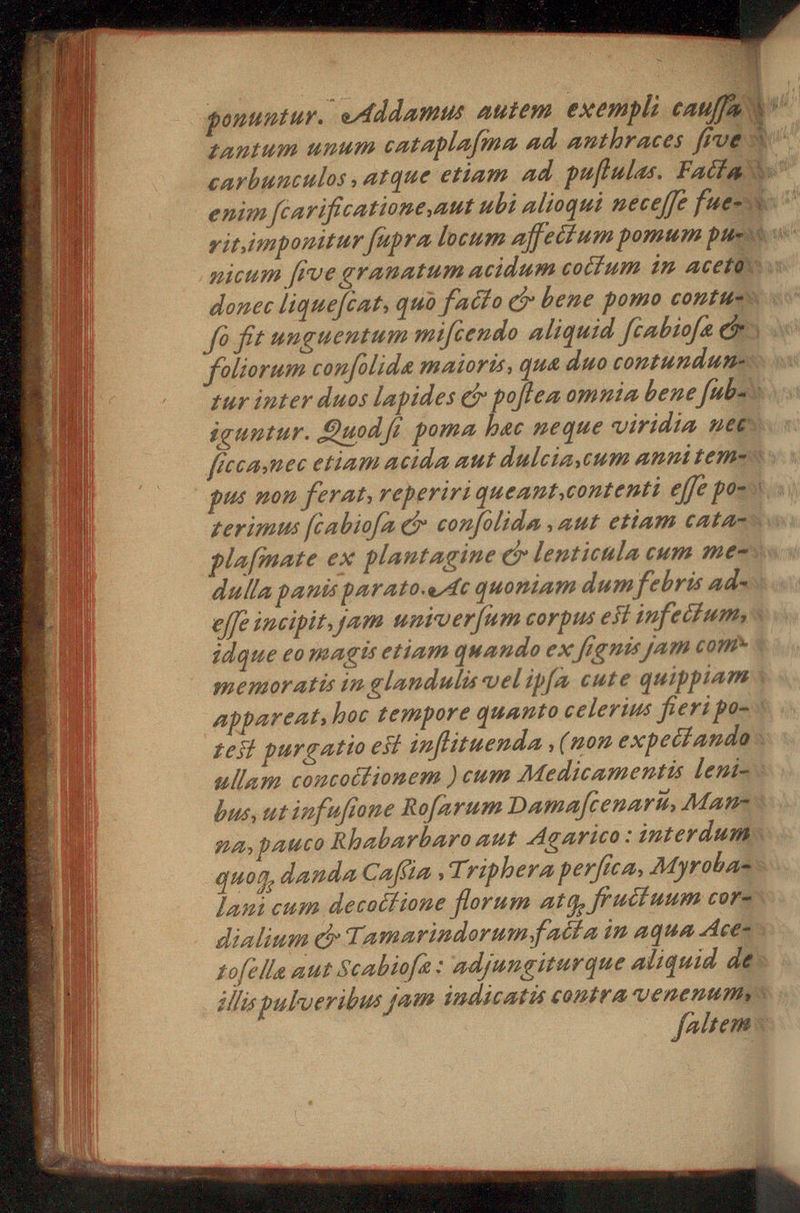 ponuntur. Addamus autem exempli cauſſa
tantum unum cataplaſma ad anthraces ſive
carbunculos, atque etiam ad puſtulas. Facta
enim ſcarificatione, aut ubi alioqui neceſſe fue-
rit, imponitur ſupra locum affectum pomum pu-
nicum ſive granatum acidum coctum in aceto
donec liqueſcat, quò facto & bene pomo contu-
ſo fit unguentum miſcendo aliquid ſcabioſæ &
foliorum conſolidæ maioris, quæ duo contundun-
tur inter duos lapides & poſtea omnia bene ſub-
iguntur. Quod ſi poma hæc neque viridia nec
ſicca, nec etiam acida aut dulcia, cum anni tem-
pus non ferat, reperiri queant, contenti eſſe po-
terimus ſcabioſa & conſolida, aut etiam cata-
plaſmate ex plantagine & lenticula cum me-
dulla panis parato. Ac quoniam dum febris ad-
eſſe incipit, jam univerſum corpus eſt infectum,
idque eo magis etiam quando ex ſignis jam com-
memoratis in glandulis vel ipſa cute quippiam
appareat, hoc tempore quanto celerius fieri po-
teſt purgatio eſt inſtituenda, (non expectando
ullam concoctionem) cum Medicamentis leni-
bus, ut infuſione Roſarum Damaſcenarũ, Man-
na, pauco Rhabarbaro aut Agarico: interdum
quoq, danda Caſſia, Triphera perſica, Myroba-
lani cum decoctione florum atq, fructuum cor-
dialium & Tamarindorum, facta in aqua Ace-
toſellæ aut Scabioſæ: adjungiturque aliquid de
illis pulveribus jam indicatis contra venenum,
ſaltem